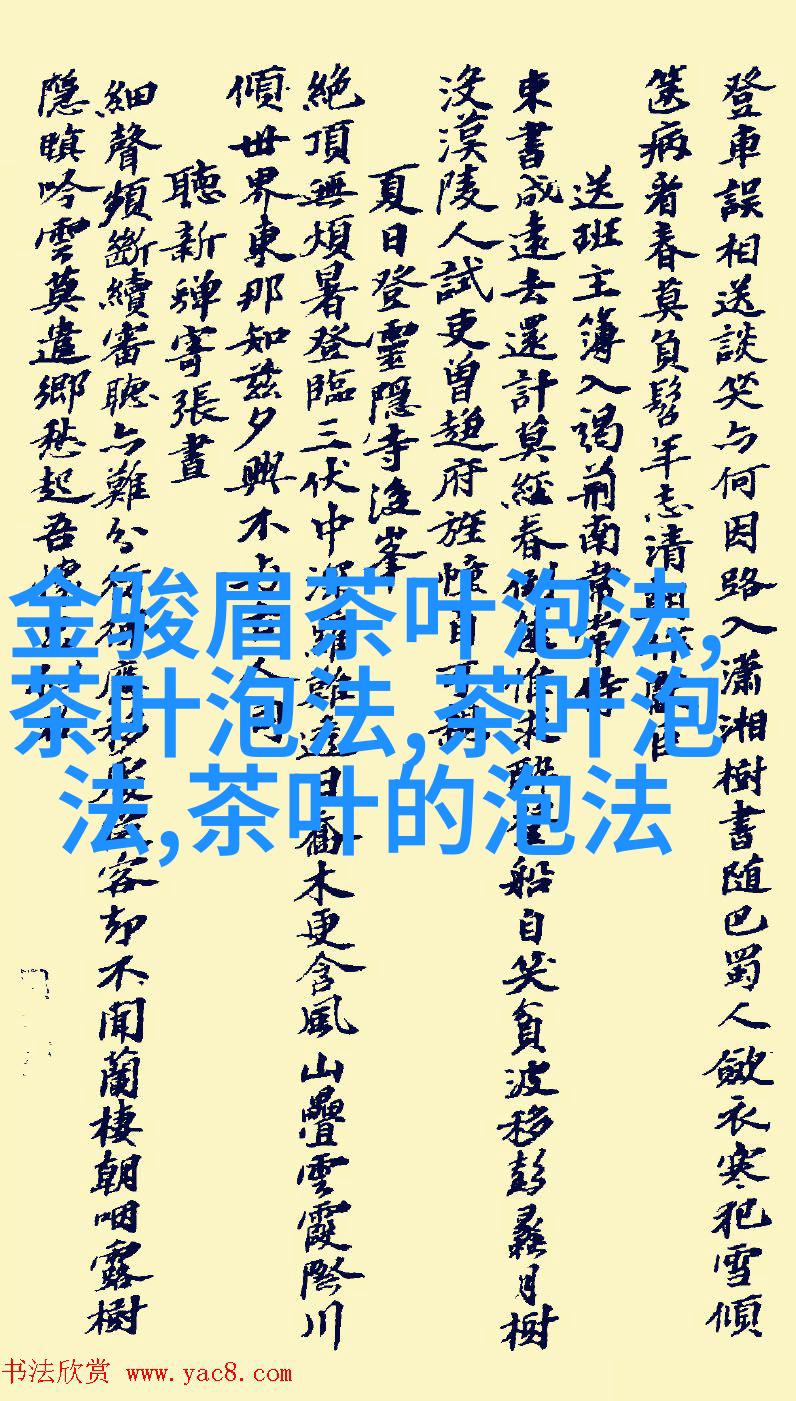 登車誤相送談笑亦何因路入瀟湘樹書随巴蜀人斂衣寒犯雪傾
篋病看春莫負髫年志清朝作獻臣
送班主簿入謁荆南韋常侍
東書成遠去還計莫經春倒篋惟求醉登船自笑貧波移彭蠡月樹
没漢陵人試吏曾趨府旌幢自可親
夏日登靈隱寺後峯
絶頂無煩暑登臨三伏中深難透日喬木更含風山疊雲霞際川
傾世界東那知兹夕興不與人同
聽新蟬寄張晝
細聲頻斷續審聽亦難分客却不聞蘭棲朝咽露樹
隱暝吟雲莫遣鄉愁起吾
金骏眉茶叶泡法,
茶叶泡法,茶叶泡
法,茶叶的泡法
书法欣赏 www.yac8.com